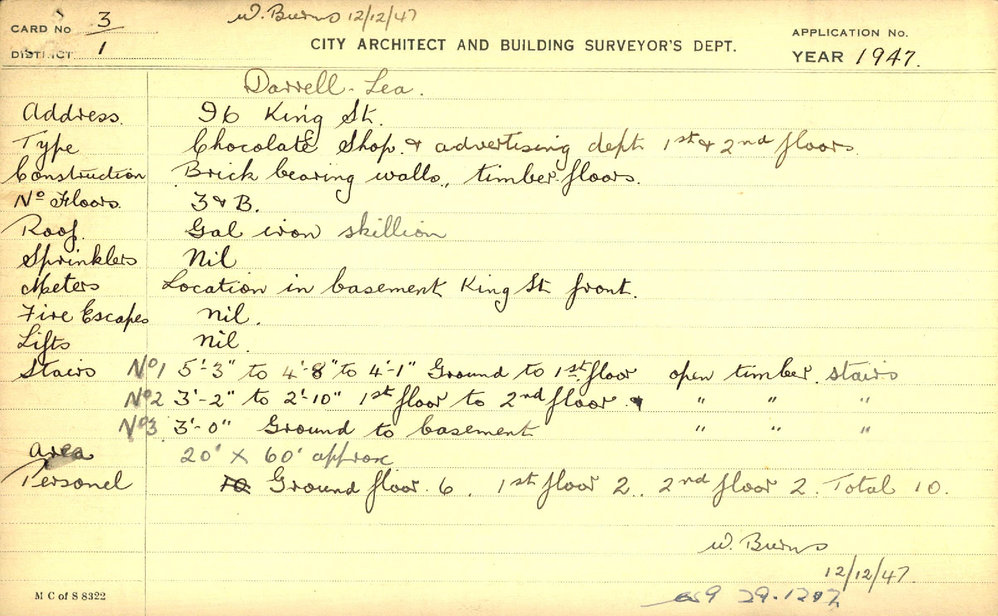 CARD No 3 W. Burns 12/12/47 APPLICATION No.
DISTRICT 1 CITY ARCHITECT AND BUILDING SURVEYOR'S DEPT. YEAR 1947.
Darrell-Lea.
Address. 96 King St.
Type Chocolate Shop. & advertising dept 1st & 2nd floors
Construction Brick bearing walls, timber floors.
No Floors. 3 & B.
Roof Gal iron skillion
Sprinklers Nil
Meters Location in basement King St front.
Fire Escapes nil.
Lifts nil
Stairs No1 5'-3" to 4'-8" to 4'-1" Ground to 1st floor open timber stairs
No2 3'-2" to 2'-10" 1st floor to 2nd floor " " "
No3. 3'-0" Ground to basement " " "
Area 20' X 60' approx
Personel Ground floor 6. 1st floor 2. 2nd floor 2. Total 10.
W. Burns
12/12/47.
M C of S 8322